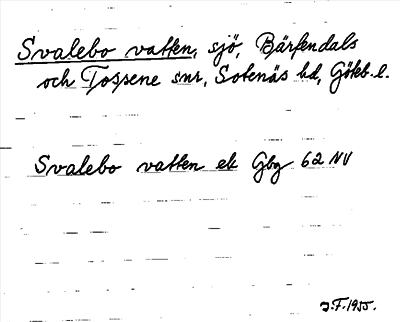 Svalebo vatten, sjö, Bärfendals
och Tossene snr, Sotenäs hd, Götebl.
Svalebo vatten ek Gbg 62 NV
J.F. 1955.